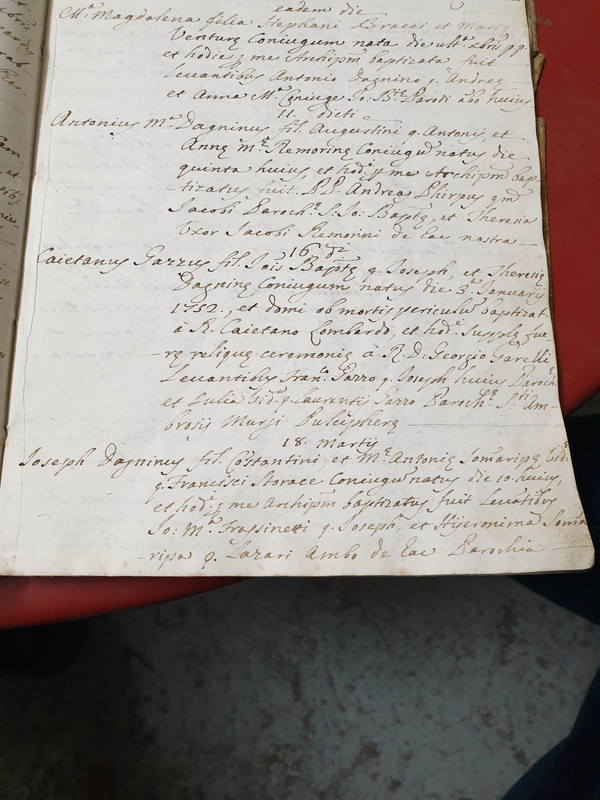 eadem die
M.ª Magdalena filia Stephani Bracci et Mariæ
Venturæ Coniugum nata die ult.ª xbris pp.
et hodie p me Archipm baptizata fuit
Levantibus Antonio Dagnino q. Andreæ
et Anna M.ª Coniuge Jo. B.tæ Parodi abo huius
11. dicti
Antonius M.ª Dagninus fil. Augustini q. Antonij, et
Annæ M.æ Remorinæ Coniugū natus die
quinta huius, et hod.e p me Archipm bap-
tizatus fuit. P.P. Andrea Phirpus qm
Jacobi Paroch.æ S. Jo: Baptæ, et Theresia
Uxor Jacobi Remorini de Eac nostra
16 d.
Caietanus Gazzus fil. Jois Baptæ q. Joseph, et Theresiæ
Dagninæ Coniugum natus die 3.ª January
1752., et domi ob mortis periculū baptizat.
à R. Caietano Lombardo, et hod.e supplæ fue-
re reliquæ ceremoniæ à R. D. Georgio Garelli
Levantibus Fran.co Gazzo q. Joseph huius Paroch.æ
et Lulia vid. q. Laurenti Gazzo Paroch.æ S.ti Am-
brosij Murji Pulcipheræ
18. Martij
Joseph Dagninus fil. Costantini, et M.æ Antoniæ Somaripæ vid.æ
q. Francisci Storace Coniugū natus die 10. huius,
et hod.e p me Archipm baptizatus fuit Levātibus
Jo: M.ª Frassinetti q. Joseph, et Hijeronima Soma
ripa q. Lazari Ambo de Eac Parochia